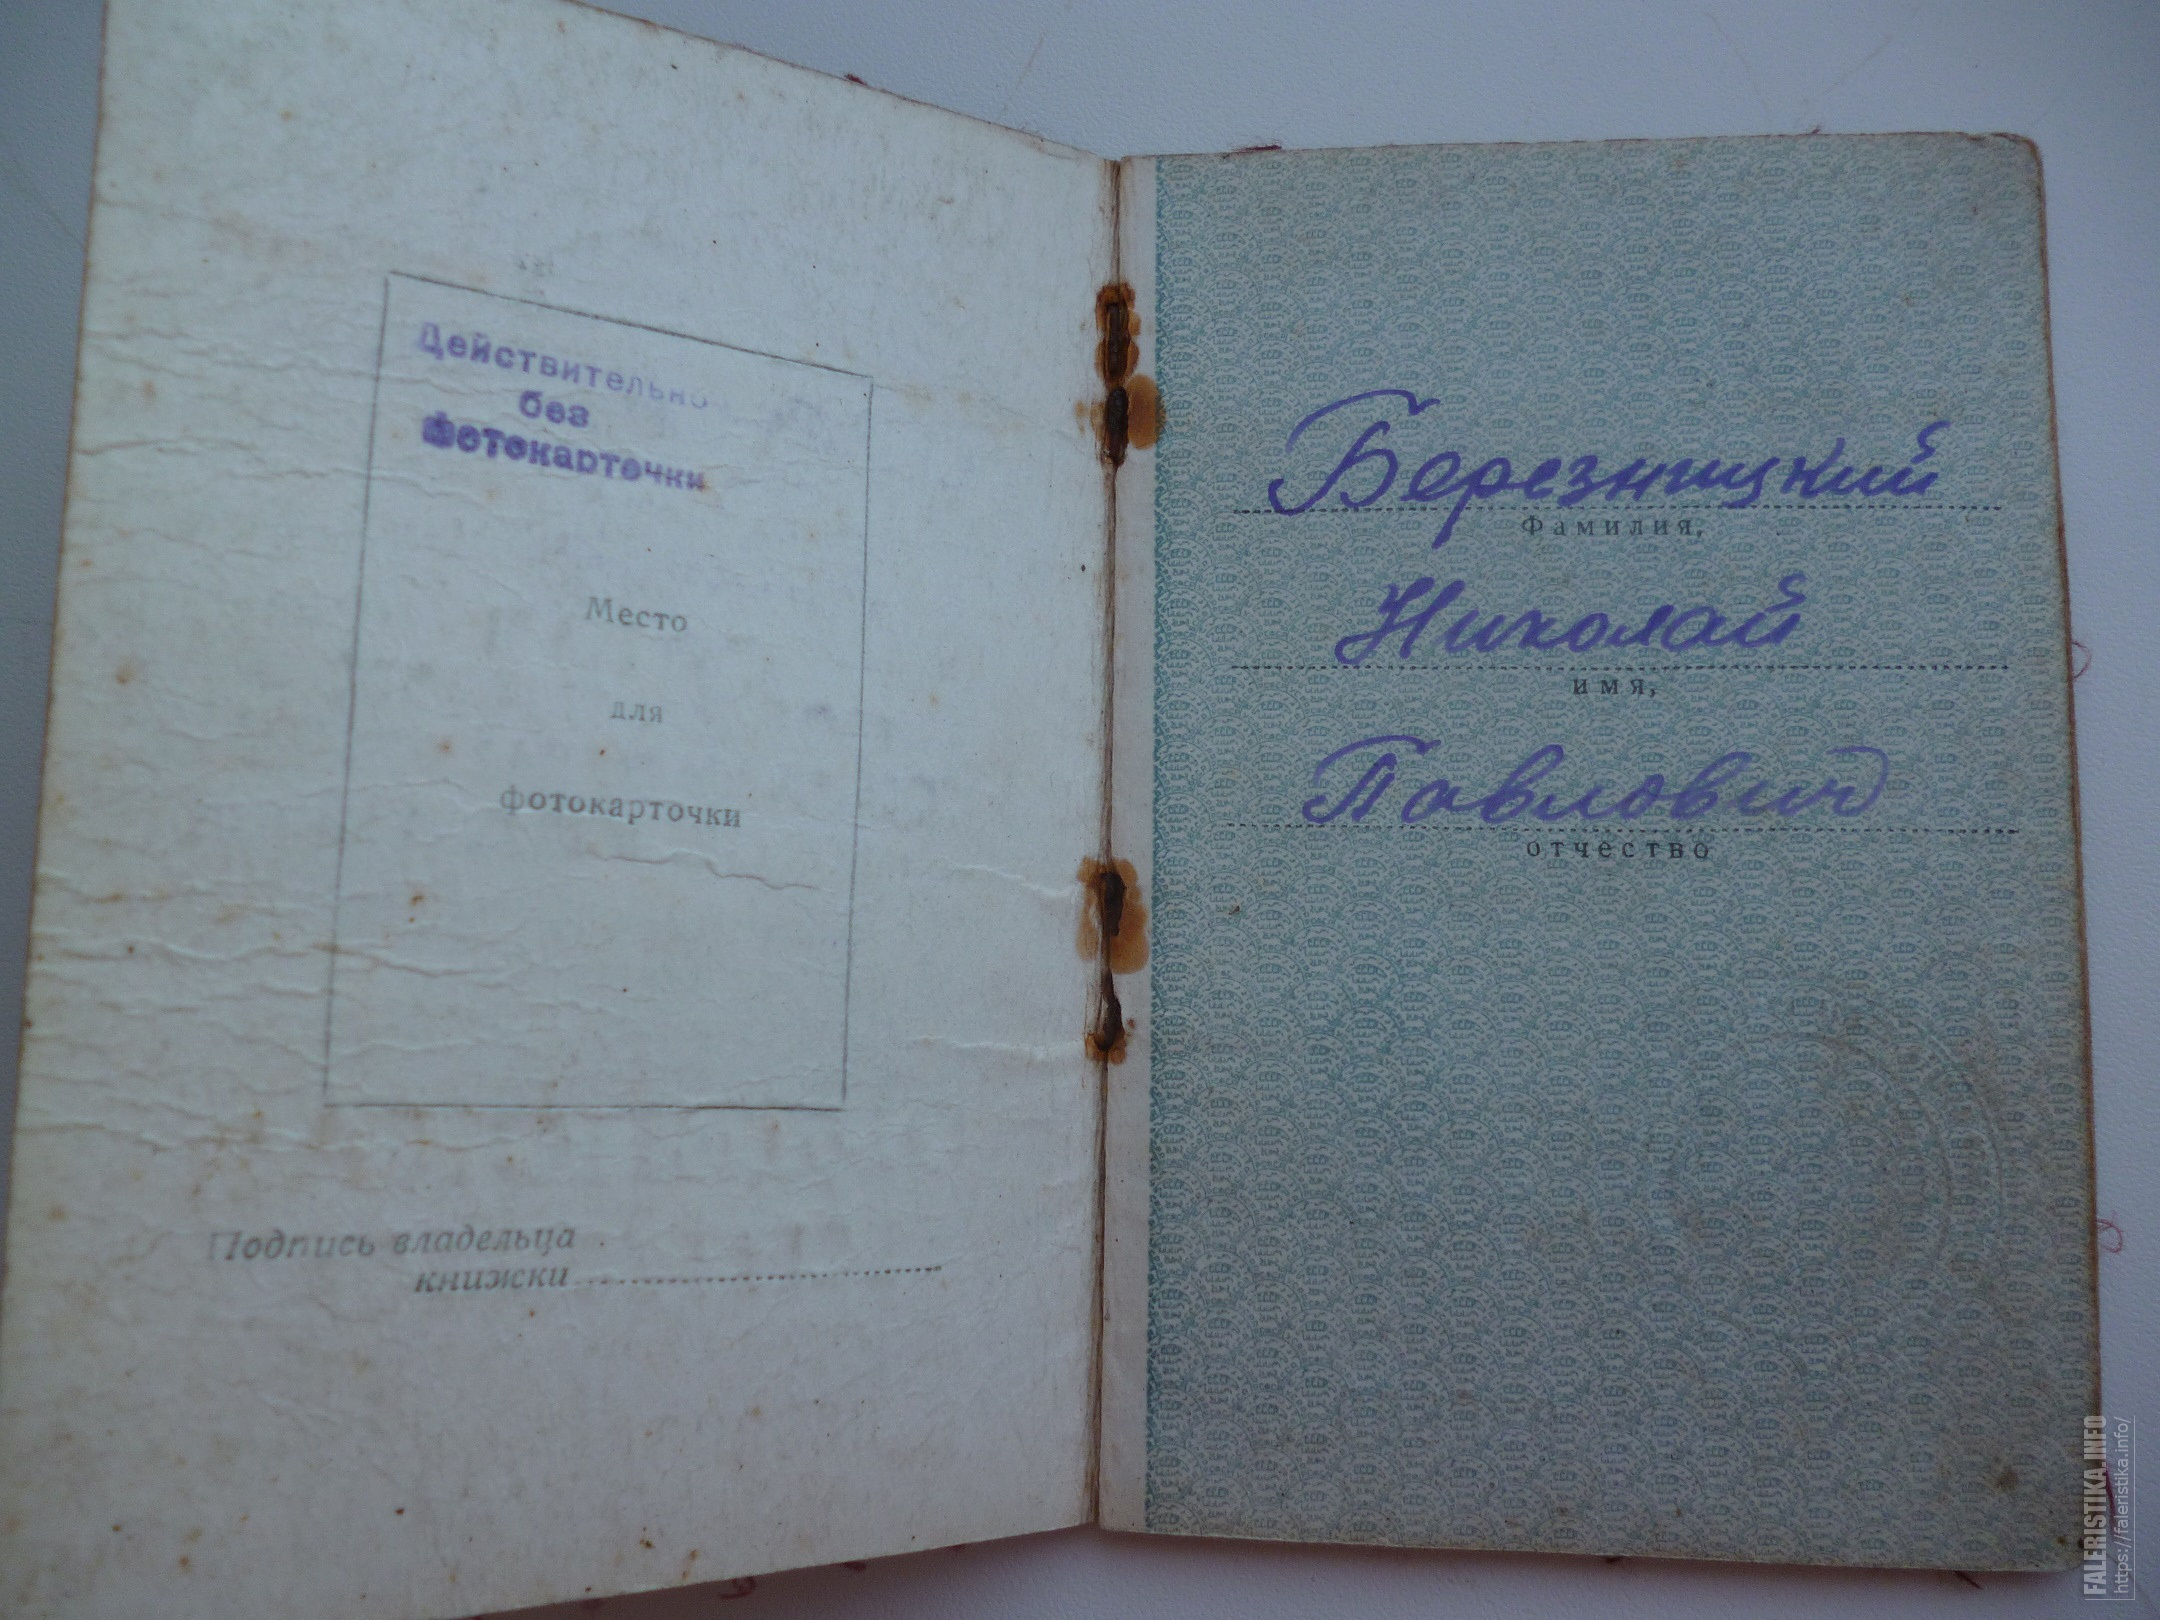 Действительно
без
фотокарточки
Место
для
фотокарточки
Подпись владельца
книжки
Березницкий
Фамилия,
Николай
имя,
Павлович
отчество
FALERISTIKA.INFO
https://faleristika.info/